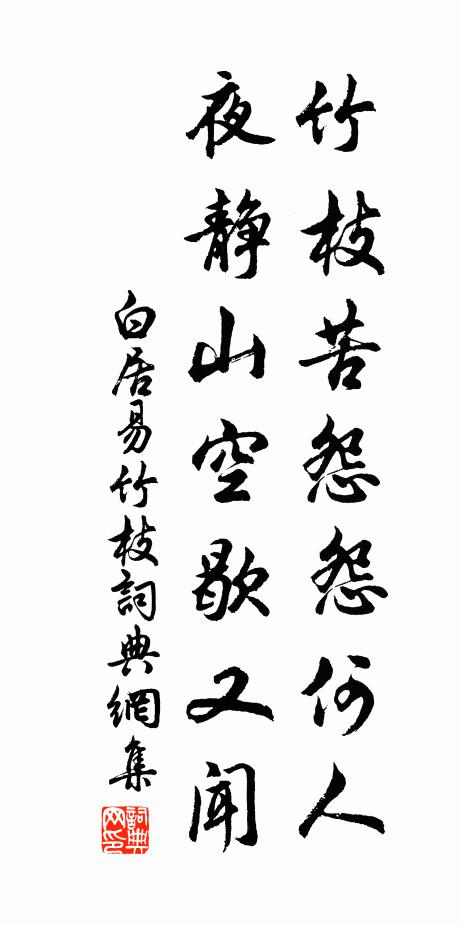 竹枝苦怨怨何人
夜静山空歇又聞
白居易竹枝詞典網集
詞典
网印